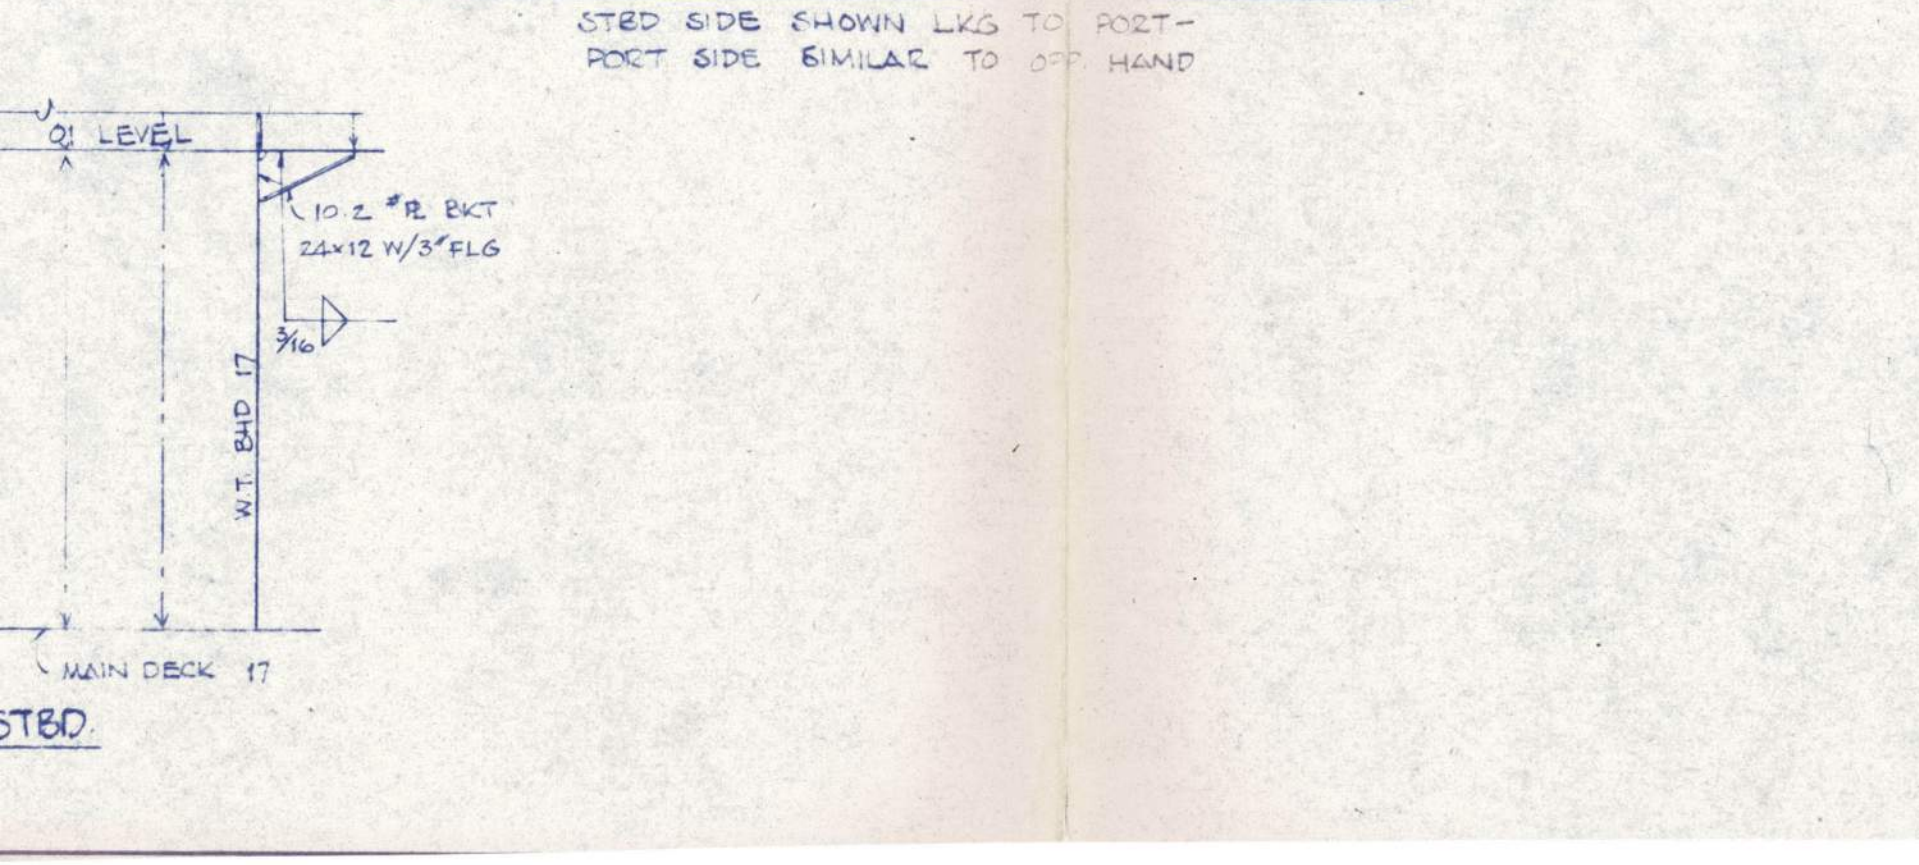 STBD SIDE SHOWN LKG TO PORT-
PORT SIDE SIMILAR TO OPP. HAND
01 LEVEL
10.2 # PL BKT
24x12 W/3" FLG
3/16
W.T. BHD 17
MAIN DECK 17
STBD.